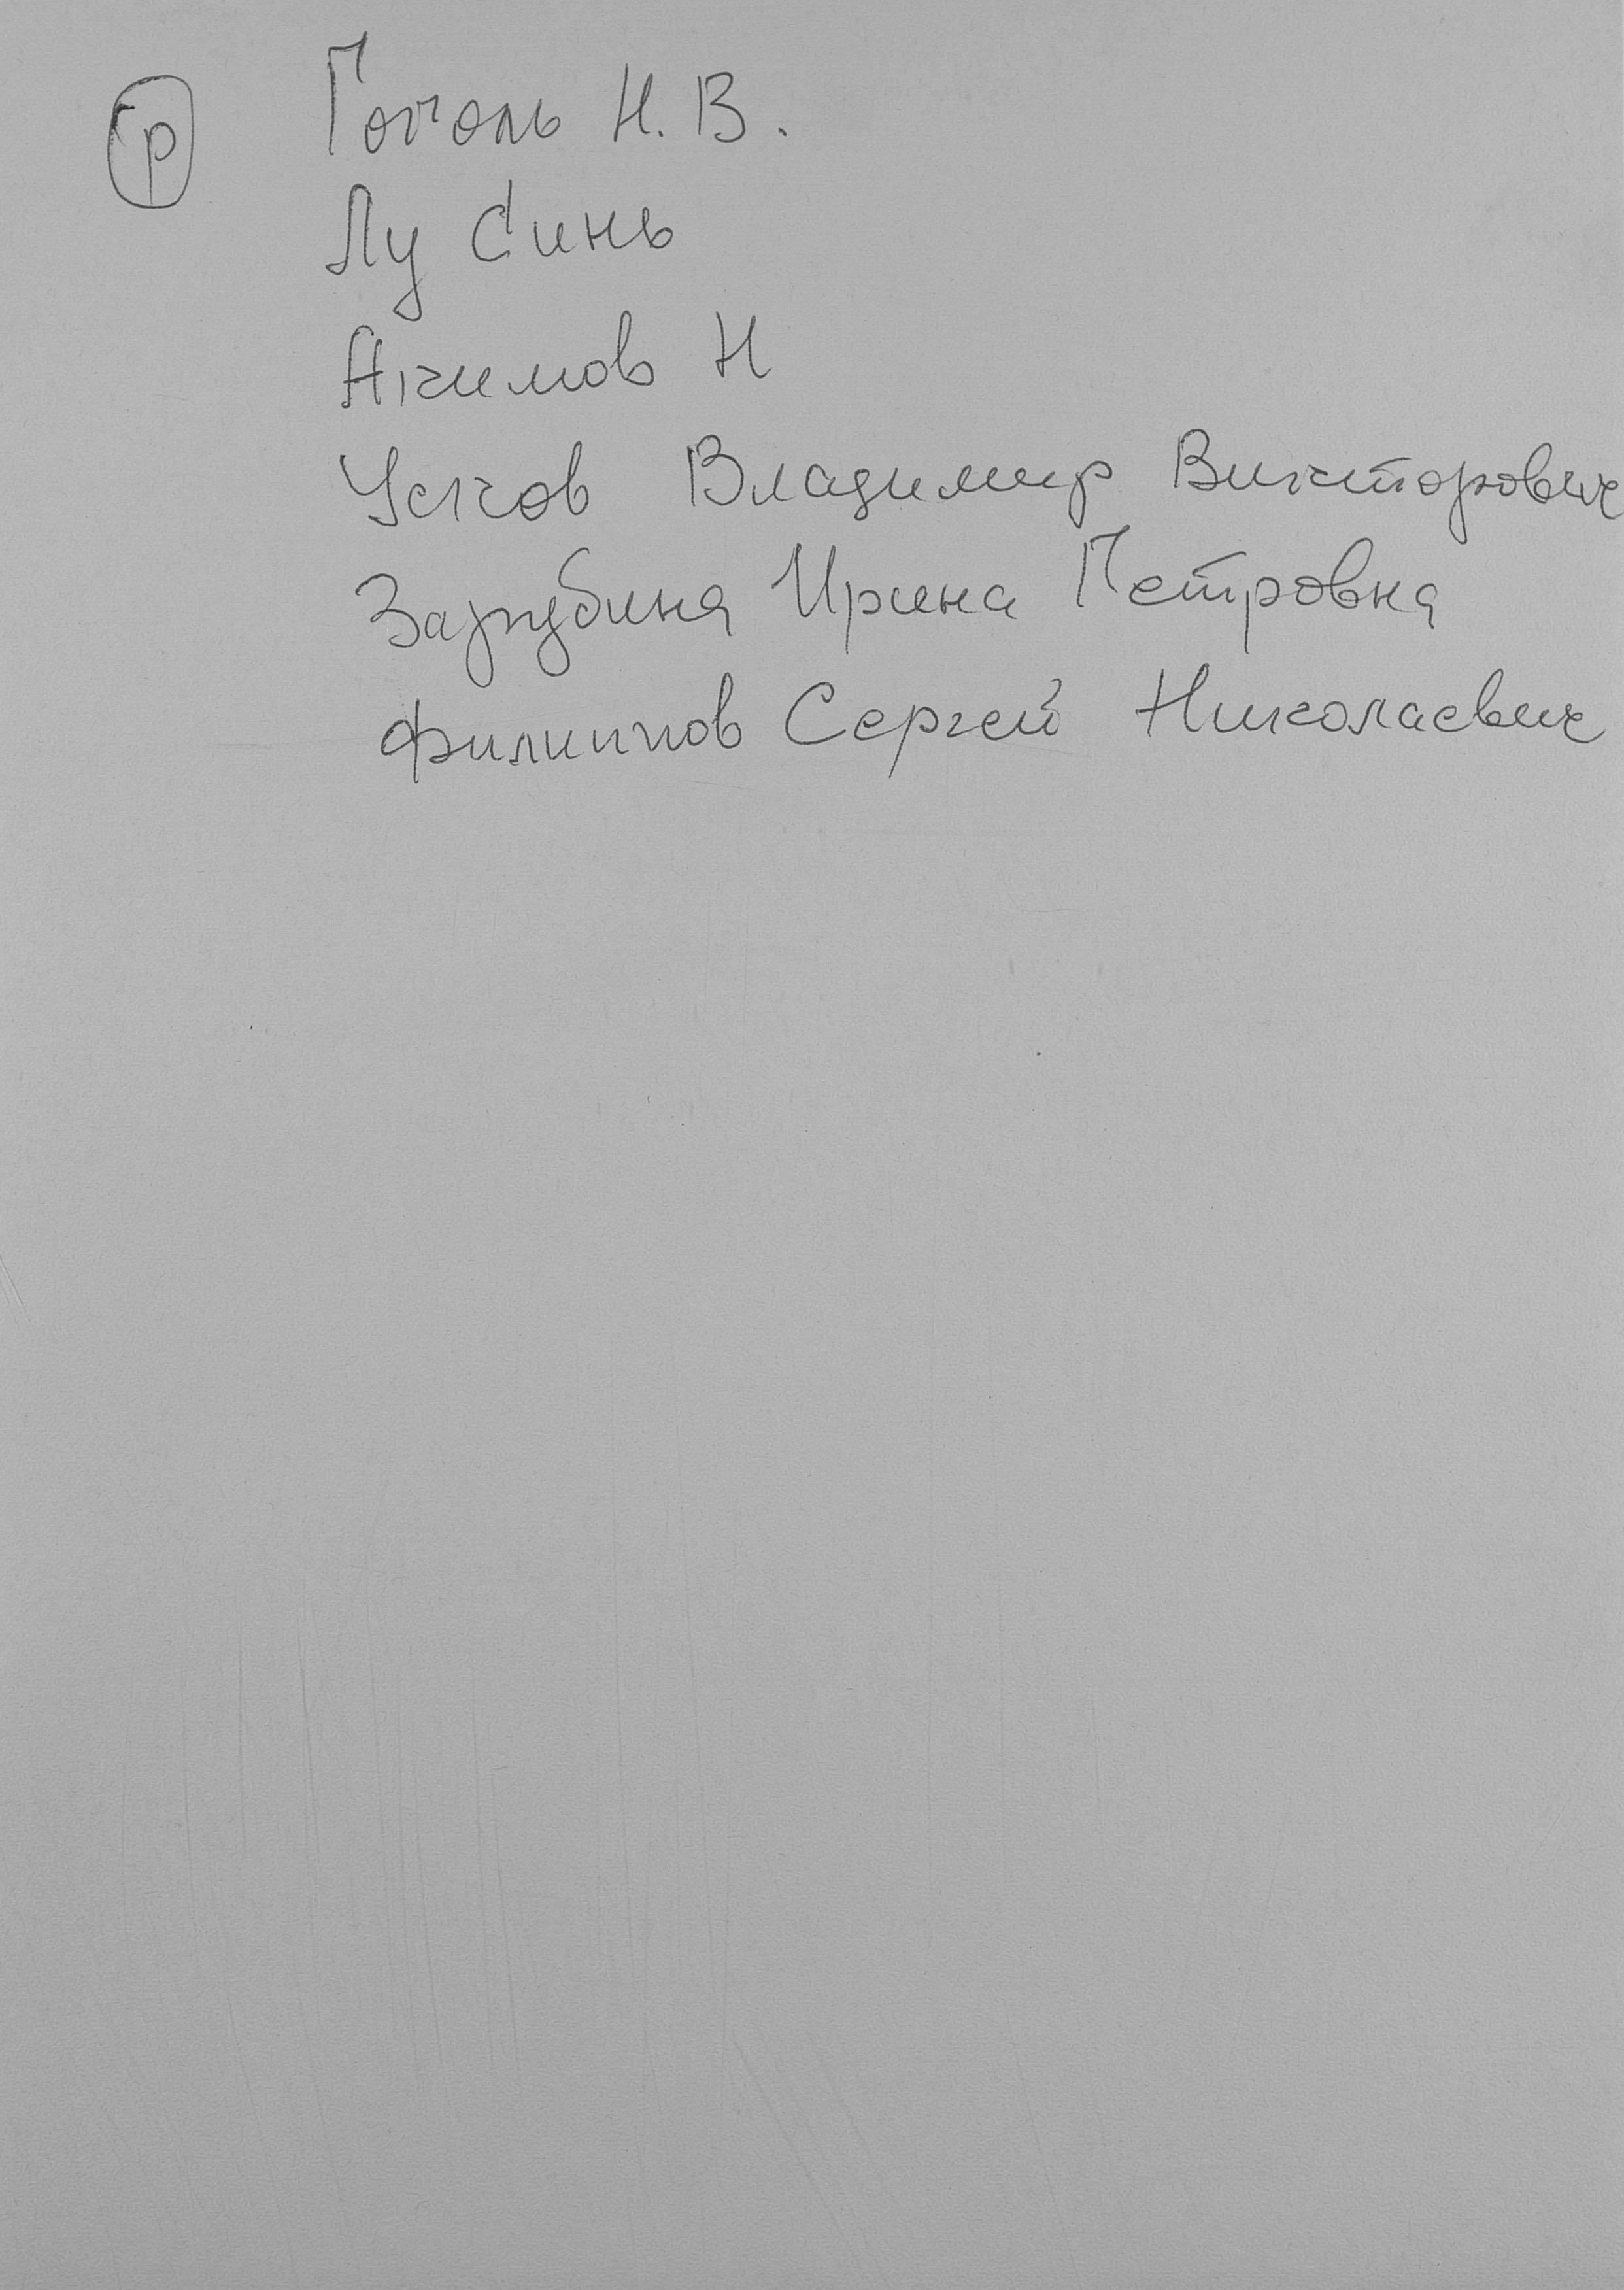 р Гоголь Н. В.
Лу Синь
Акимов Н
Усков Владимир Викторович
Зарубина Ирина Петровна
Филиппов Сергей Николаевич